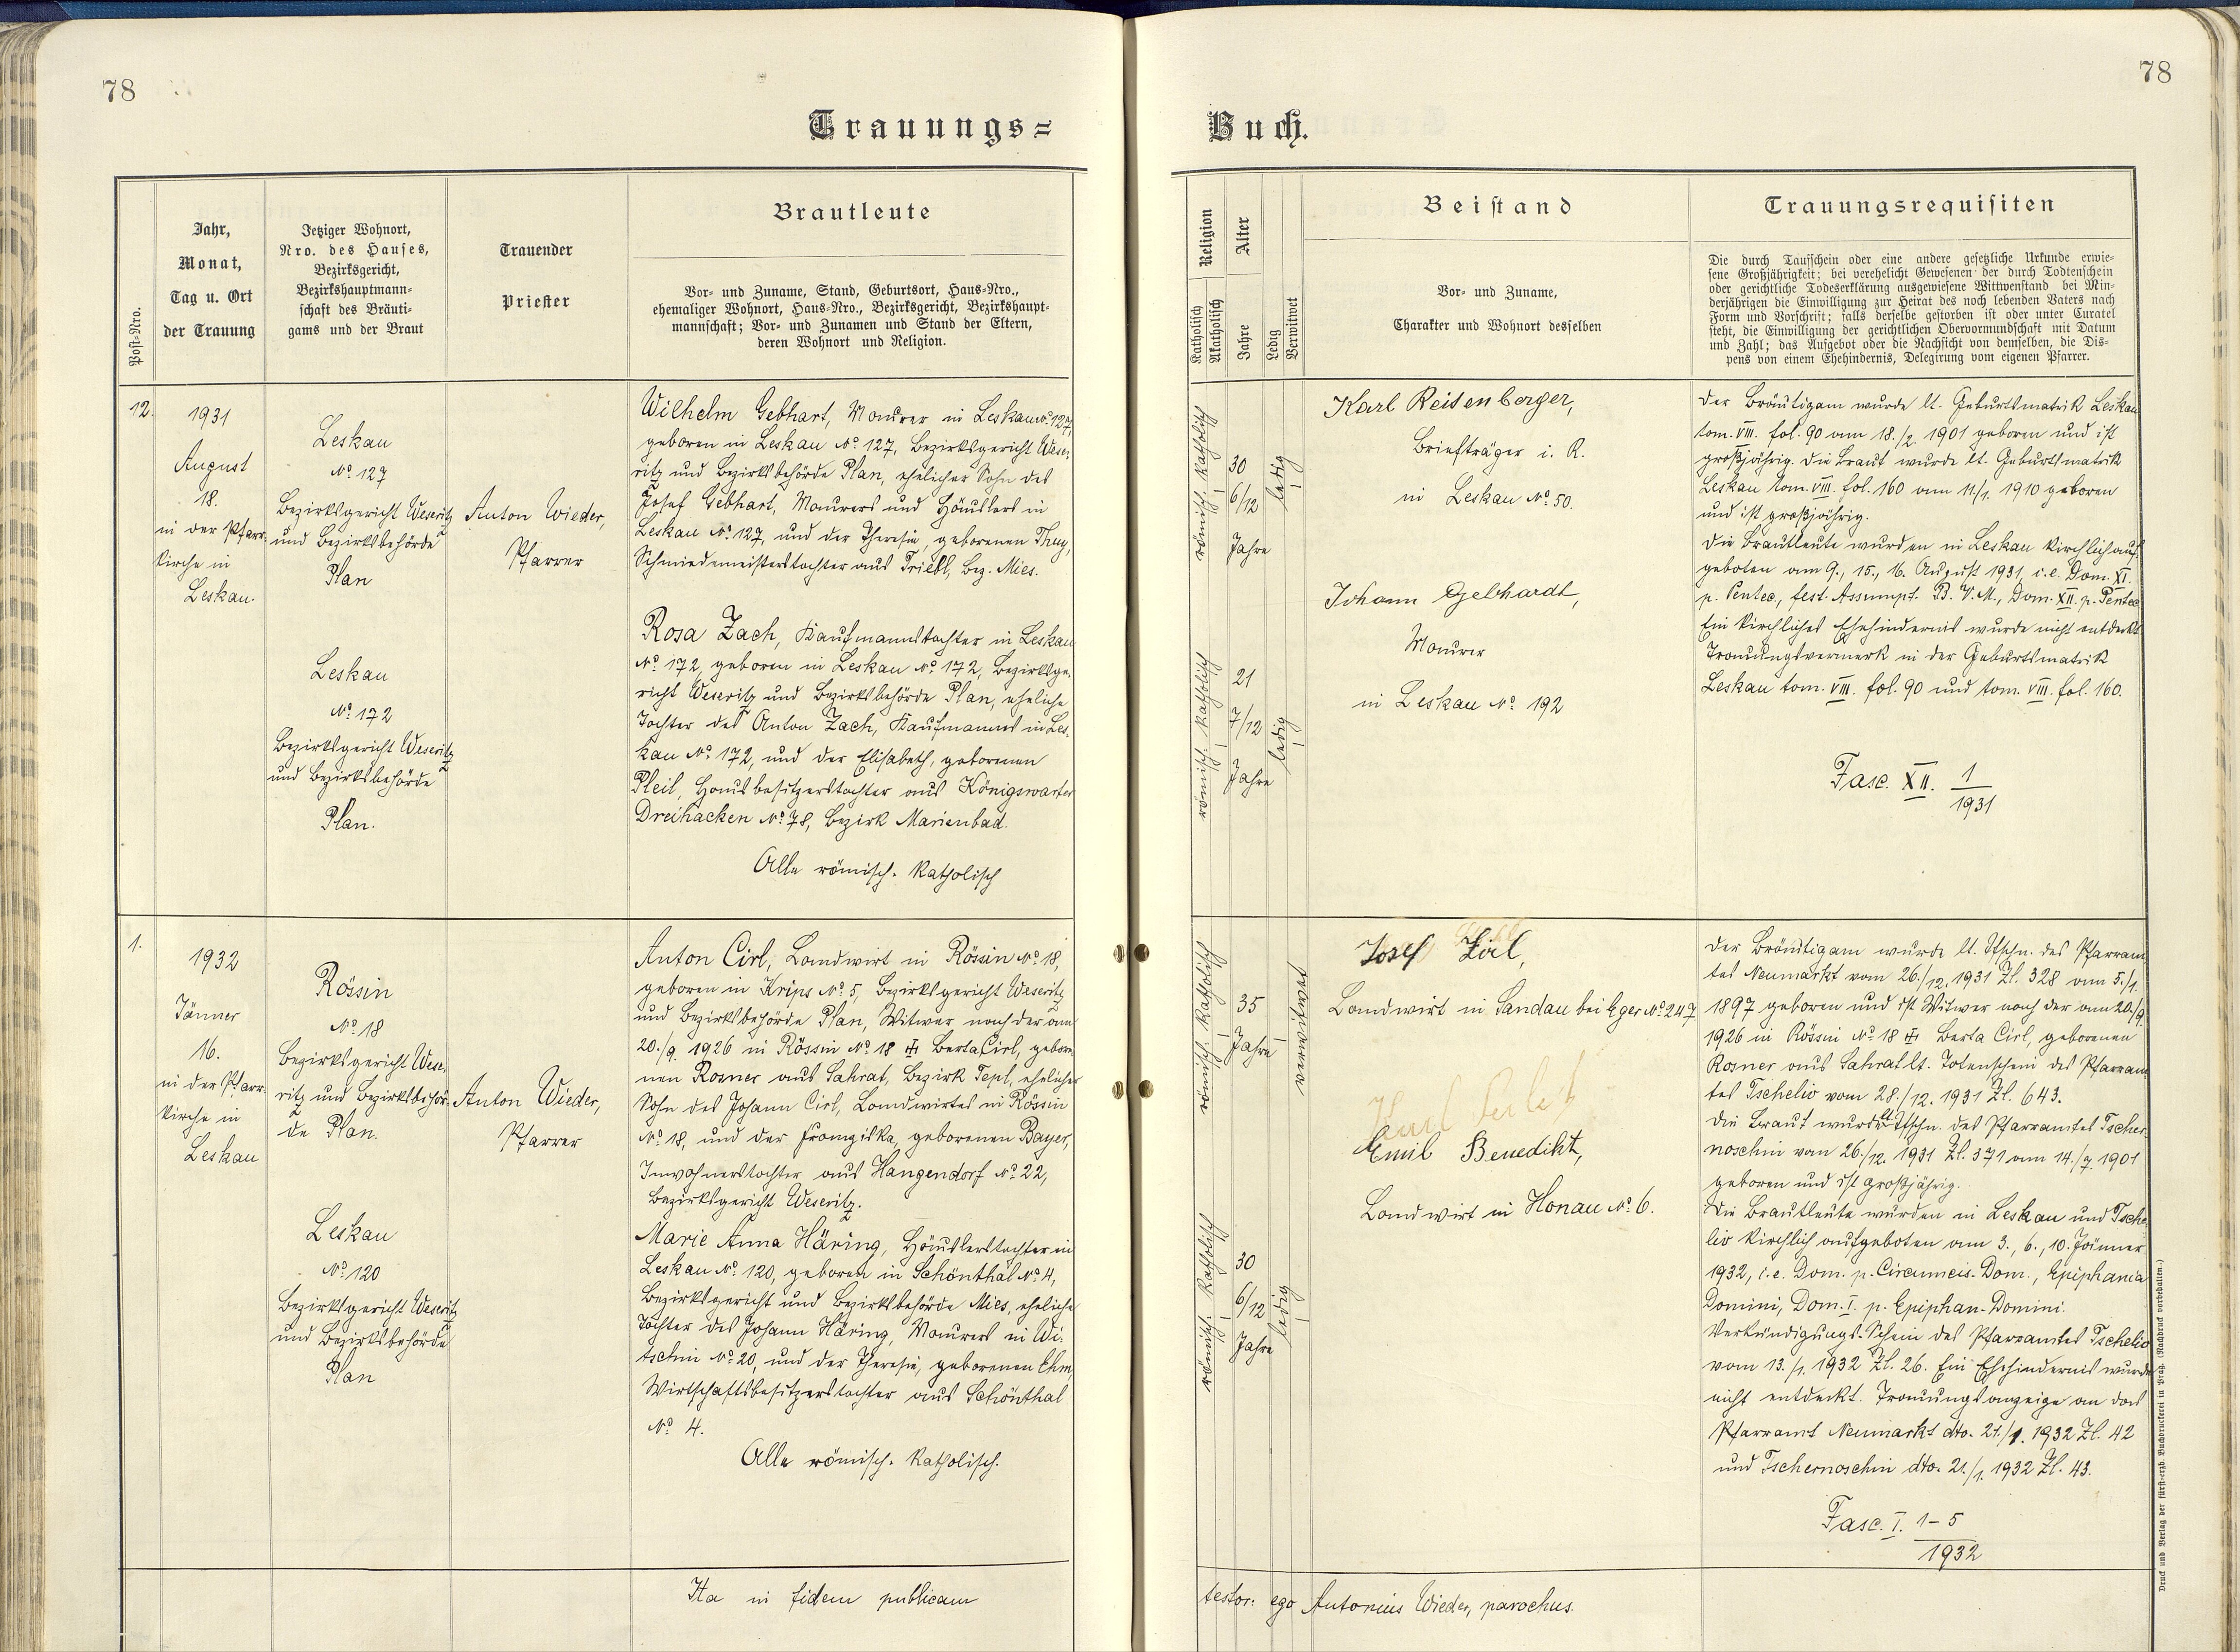 78
78
Trauungs=
Buch.
Post-Nro.
Jahr,
Monat,
Tag u. Ort
der Trauung
Jetziger Wohnort,
Nro. des Hauses,
Bezirksgericht,
Bezirkshauptmann-
schaft des Bräuti-
gams und der Braut
Trauender
Priester
Brautleute
Vor- und Zuname, Stand, Geburtsort, Haus-Nro.,
ehemaliger Wohnort, Haus-Nro., Bezirksgericht, Bezirkshaupt-
mannschaft; Vor- und Zunamen und Stand der Eltern,
deren Wohnort und Religion.
Religion
Katholisch
Akatholisch
Alter
Jahre
Ledig
Verwitwet
Beistand
Vor- und Zuname,
Charakter und Wohnort desselben
Trauungsrequisiten
Die durch Taufschein oder eine andere gesetzliche Urkunde erwie-
sene Großjährigkeit; bei verehelicht Gewesenen der durch Todtenschein
oder gerichtliche Todeserklärung ausgewiesene Wittwenstand bei Min-
derjährigen die Einwilligung zur Heirat des noch lebenden Vaters nach
Form und Vorschrift; falls derselbe gestorben ist oder unter Curatel
steht, die Einwilligung der gerichtlichen Obervormundschaft mit Datum
und Zahl; das Aufgebot oder die Nachsicht von demselben, die Dis-
pens von einem Ehehindernis, Delegirung vom eigenen Pfarrer.
12.
1931
August
18.
in der Pfarr-
kirche in
Leskau.
Leskau
No 127
Bezirksgericht Weseritz
und Bezirksbehörde
Plan
Leskau
No 172
Bezirksgericht Weseritz
und Bezirksbehörde
Plan.
Anton Wieder,
Pfarrer
Wilhelm Gebhart, Maurer in Leskau No 127,
geboren in Leskau No 127, Bezirksgericht Wese-
ritz und Bezirksbehörde Plan, ehelicher Sohn des
Josef Gebhart, Maurers und Häuslers in
Leskau No 127, und der Theresia, geborenen Thuy,
Schmiedemeisterstochter aus Triebl, Bez. Mies.
Rosa Zach, Kaufmannstochter in Leskau
No 172, geboren in Leskau No 172, Bezirksge-
richt Weseritz und Bezirksbehörde Plan, eheliche
Tochter des Anton Zach, Kaufmannes in Les-
kau No 172, und der Elisabeth, geborenen
Pleil, Hausbesitzerstochter aus Königswarter
Dreihacken No 78, Bezirk Marienbad.
Alle römisch-katholisch
römisch-katholisch
30
6/12
Jahre
ledig
römisch-katholisch
21
7/12
Jahre
ledig
Karl Reisenberger,
Briefträger i. R.
in Leskau No 50.
Johann Gebhardt,
Maurer
in Leskau No 192
Der Bräutigam wurde lt. Geburtsmatrik Leskau
tom. VIII. fol. 90 am 18./2. 1901 geboren und ist
großjährig. Die Braut wurde lt. Geburtsmatrik
Leskau tom. VIII. fol. 160 am 11./1. 1910 geboren
und ist großjährig.
Die Brautleute wurden in Leskau kirchlich auf-
geboten am 9., 15., 16. August 1931, i.e. Dom. XI.
p. Pentec., fest. Assumpt. B. V. M., Dom. XII. p. Pentec.
Ein kirchliches Ehehindernis wurde nicht entdeckt.
Trauungsvermerk in der Geburtsmatrik
Leskau tom. VIII. fol. 90 und tom. VIII. fol. 160.
Fasc. XII. 1
1931
1.
1932
Jänner
16.
in der Pfarr-
kirche in
Leskau
Rössin
No 18
Bezirksgericht Wese-
ritz und Bezirksbehör-
de Plan.
Leskau
No 120
Bezirksgericht Weseritz
und Bezirksbehörde
Plan
Anton Wieder,
Pfarrer
Anton Cirl, Landwirt in Rössin No 18,
geboren in Krips No 5, Bezirksgericht Weseritz
und Bezirksbehörde Plan, Witwer nach der am
20./9. 1926 in Rössin No 18 ☩ Berta Cirl, gebore-
nen Rosner aus Sahrat, Bezirk Tepl, ehelicher
Sohn des Johann Cirl, Landwirtes in Rössin
No 18, und der Franziska, geborenen Bayer,
Inwohnerstochter aus Hangendorf No 22,
Bezirksgericht Weseritz.
Marie Anna Häring, Häuslerstochter in
Leskau No 120, geboren in Schönthal No 4,
Bezirksgericht und Bezirksbehörde Mies, eheliche
Tochter des Johann Häring, Maurers in Wi-
tschin No 20, und der Theresia, geborenen Ehm,
Wirtschaftsbesitzerstochter aus Schönthal
No 4.
Alle römisch-katholisch.
römisch-katholisch
35
Jahre
verwitwet
römisch-katholisch
30
6/12
Jahre
ledig
Josef Zirl,
Landwirt in Sandau bei Eger No 247
Emil Benedikt,
Landwirt in Honau No 6.
Der Bräutigam wurde lt. Tfschn. des Pfarram-
tes Neumarkt vom 26./12. 1931 Zl. 328 am 5./1.
1897 geboren und ist Witwer nach der am 20./9.
1926 in Rössin No 18 ☩ Berta Cirl, geborenen
Rosner aus Sahrat lt. Totenschein des Pfarram-
tes Tscheliv vom 28./12. 1931 Zl. 643.
Die Braut wurde lt. Tfschn. des Pfarramtes Tscher-
noschin vom 26./12. 1931 Zl. 371 am 14./7. 1901
geboren und ist großjährig.
Die Brautleute wurden in Leskau und Tsche-
liv kirchlich aufgeboten am 3., 6., 10. Jänner
1932, i.e. Dom. p. Circumcis. Dom., Epiphania
Domini, Dom. I. p. Epiphan. Domini.
Verkündigungs-Schein des Pfarramtes Tscheliv
vom 13./1. 1932 Zl. 26. Ein Ehehindernis wurde
nicht entdeckt. Trauungsanzeige an das
Pfarramt Neumarkt dto. 21./1. 1932 Zl. 42
und Tschernoschin dto. 21./1. 1932 Zl. 43.
Fasc. I. 1-5
1932
Ita in fidem publicam
testor: ego Antonius Wieder, parochus.
Druck und Verlag der fürst-erzb. Buchdruckerei in Prag. (Nachdruck vorbehalten.)